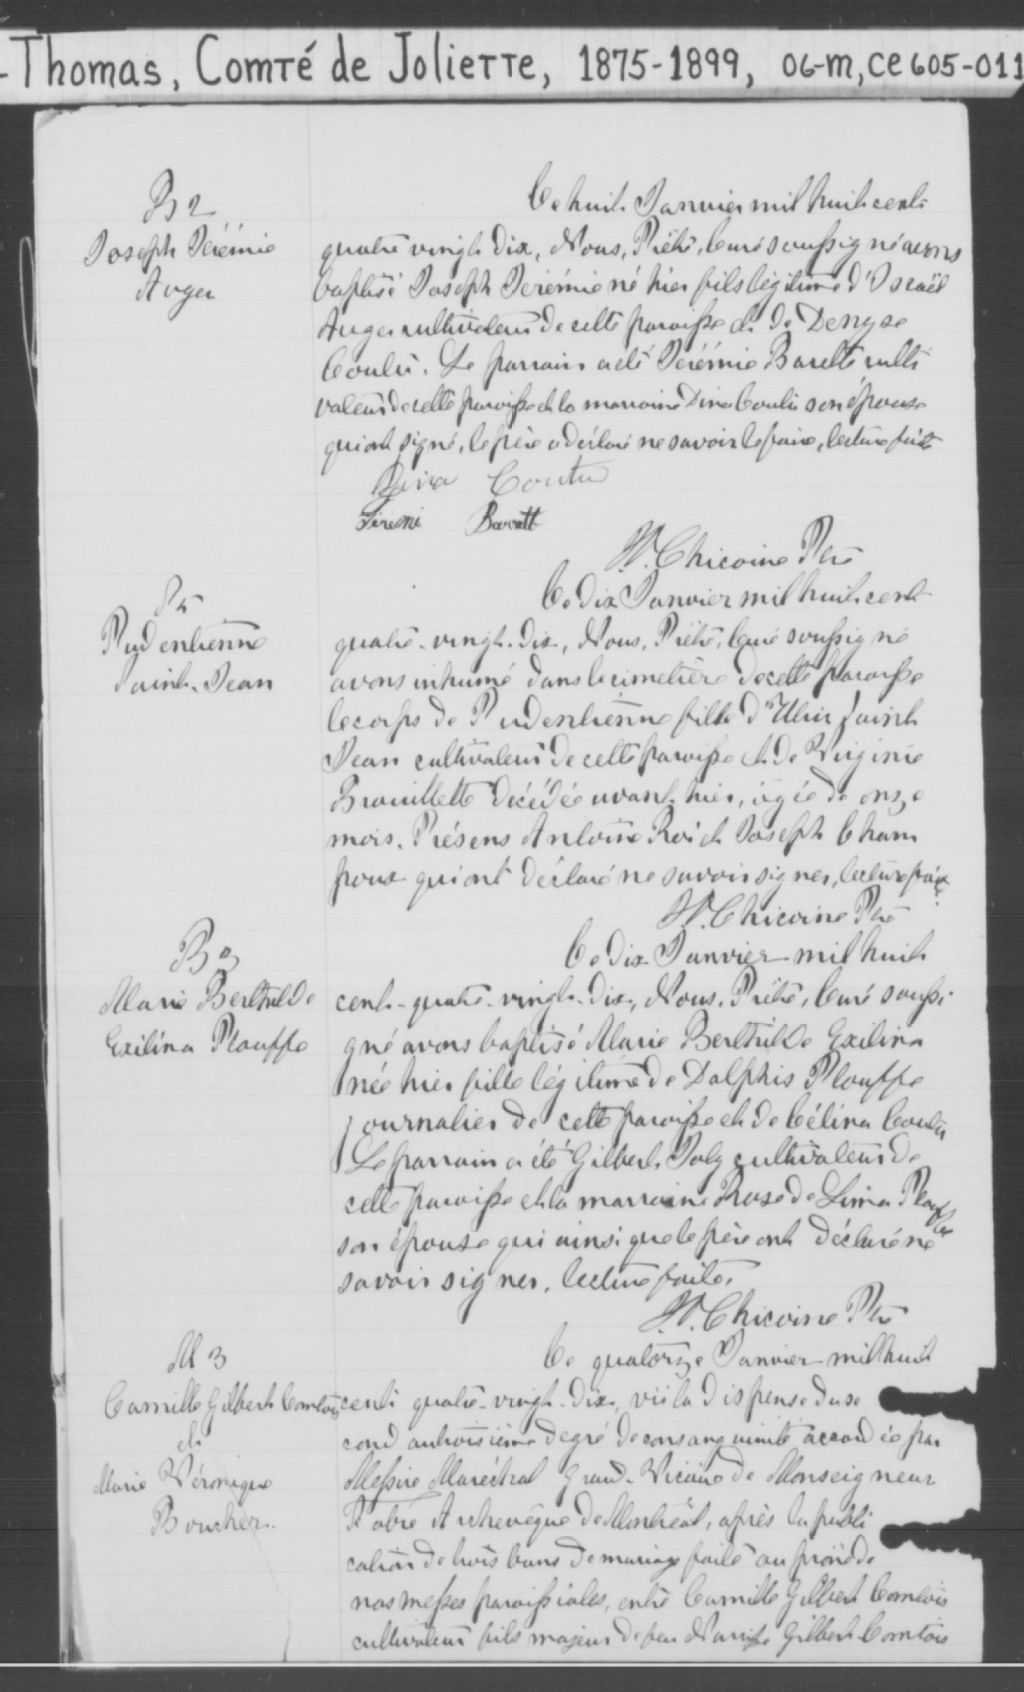 -Thomas, Comté de Joliette, 1875-1899, 06-M, CE605-011
B 2
Joseph Jérémie
Auger
Ce huit Janvier mil huit cent
quatre vingt dix, Nous, Prêtre, Curé soussigné avons
baptisé Joseph Jérémie né hier fils légitime d'Israël
Auger cultivateur de cette paroisse et de Denyse
Coutu. Le parrain a été Jérémie Barette culti
vateur de cette paroisse et la marraine Dina Coutu son épouse
qui ont signé, le père a déclaré ne savoir le faire, lecture faite
Dina Coutu
Jeremi Barett
Chicoine Ptre
Pudentienne
Saint-Jean
Ce dix Janvier mil huit cent
quatre-vingt-dix, Nous, Prêtre, Curé soussigné
avons inhumé dans le cimetière de cette paroisse
le corps de Pudentienne fille d' Saint
Jean cultivateur de cette paroisse et de Virginie
Brouillette décédée avant-hier, âgée de onze
mois. Présens Antoine Roi et Joseph Cham
poux qui ont déclaré ne savoir signer, lecture faite.
Chicoine Ptre
B 3
Marie Berthilde
Exilina Plouffe
Ce dix Janvier mil huit
cent-quatre-vingt-dix, Nous, Prêtre, Curé soussi-
gné avons baptisé Marie Berthilde Exilina
née hier fille légitime de Dolphis Plouffe
journalier de cette paroisse et de Célina Coutu
Le parrain a été Gilbert Joly cultivateur de
cette paroisse et la marraine Rose de Lima Plouffe
son épouse qui ainsi que le père ont déclaré ne
savoir signer, lecture faite.
Chicoine Ptre
M 3
Camille Gilbert Comtois
et
Marie Véronique
Boucher
Ce quatorze Janvier mil huit
cent quatre-vingt-dix, vu la dispense du se
cond au troisième degré de consanguinité accordée par
Messire Maréchal Grand-Vicaire de Monseigneur
Fabre Archevêque de Montréal, après la publi
cation de trois bans de mariage faite au prône de
nos messes paroissiales, entre Camille Gilbert Comtois
cultivateur fils majeur de feu Narcisse Gilbert Comtois